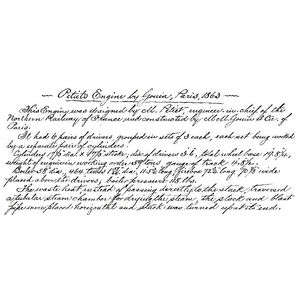 Petiet's Engine by Gouin, Paris, 1863
This Engine was designed by M. Petiet, engineer-in-chief of the
Northern Railway of France and constructed by MM. Gouin & Cie. of
Paris.
It had 6 pairs of drivers, grouped in sets of 3 each, each set being worked
by a separate pair of cylinders.
Cylinders dia. x stroke, dia. of drivers total wheel base
weight of engine in working order tons gauge of track
Boiler dia., 464 tubes dia., long firebox long wide
placed above the drivers; boiler pressure lbs.
The waste heat, instead of passing directly to the stack, traversed
a tubular steam chamber for drying the steam, the stack and blast
pipe were placed horizontal and stack was turned up at its end.